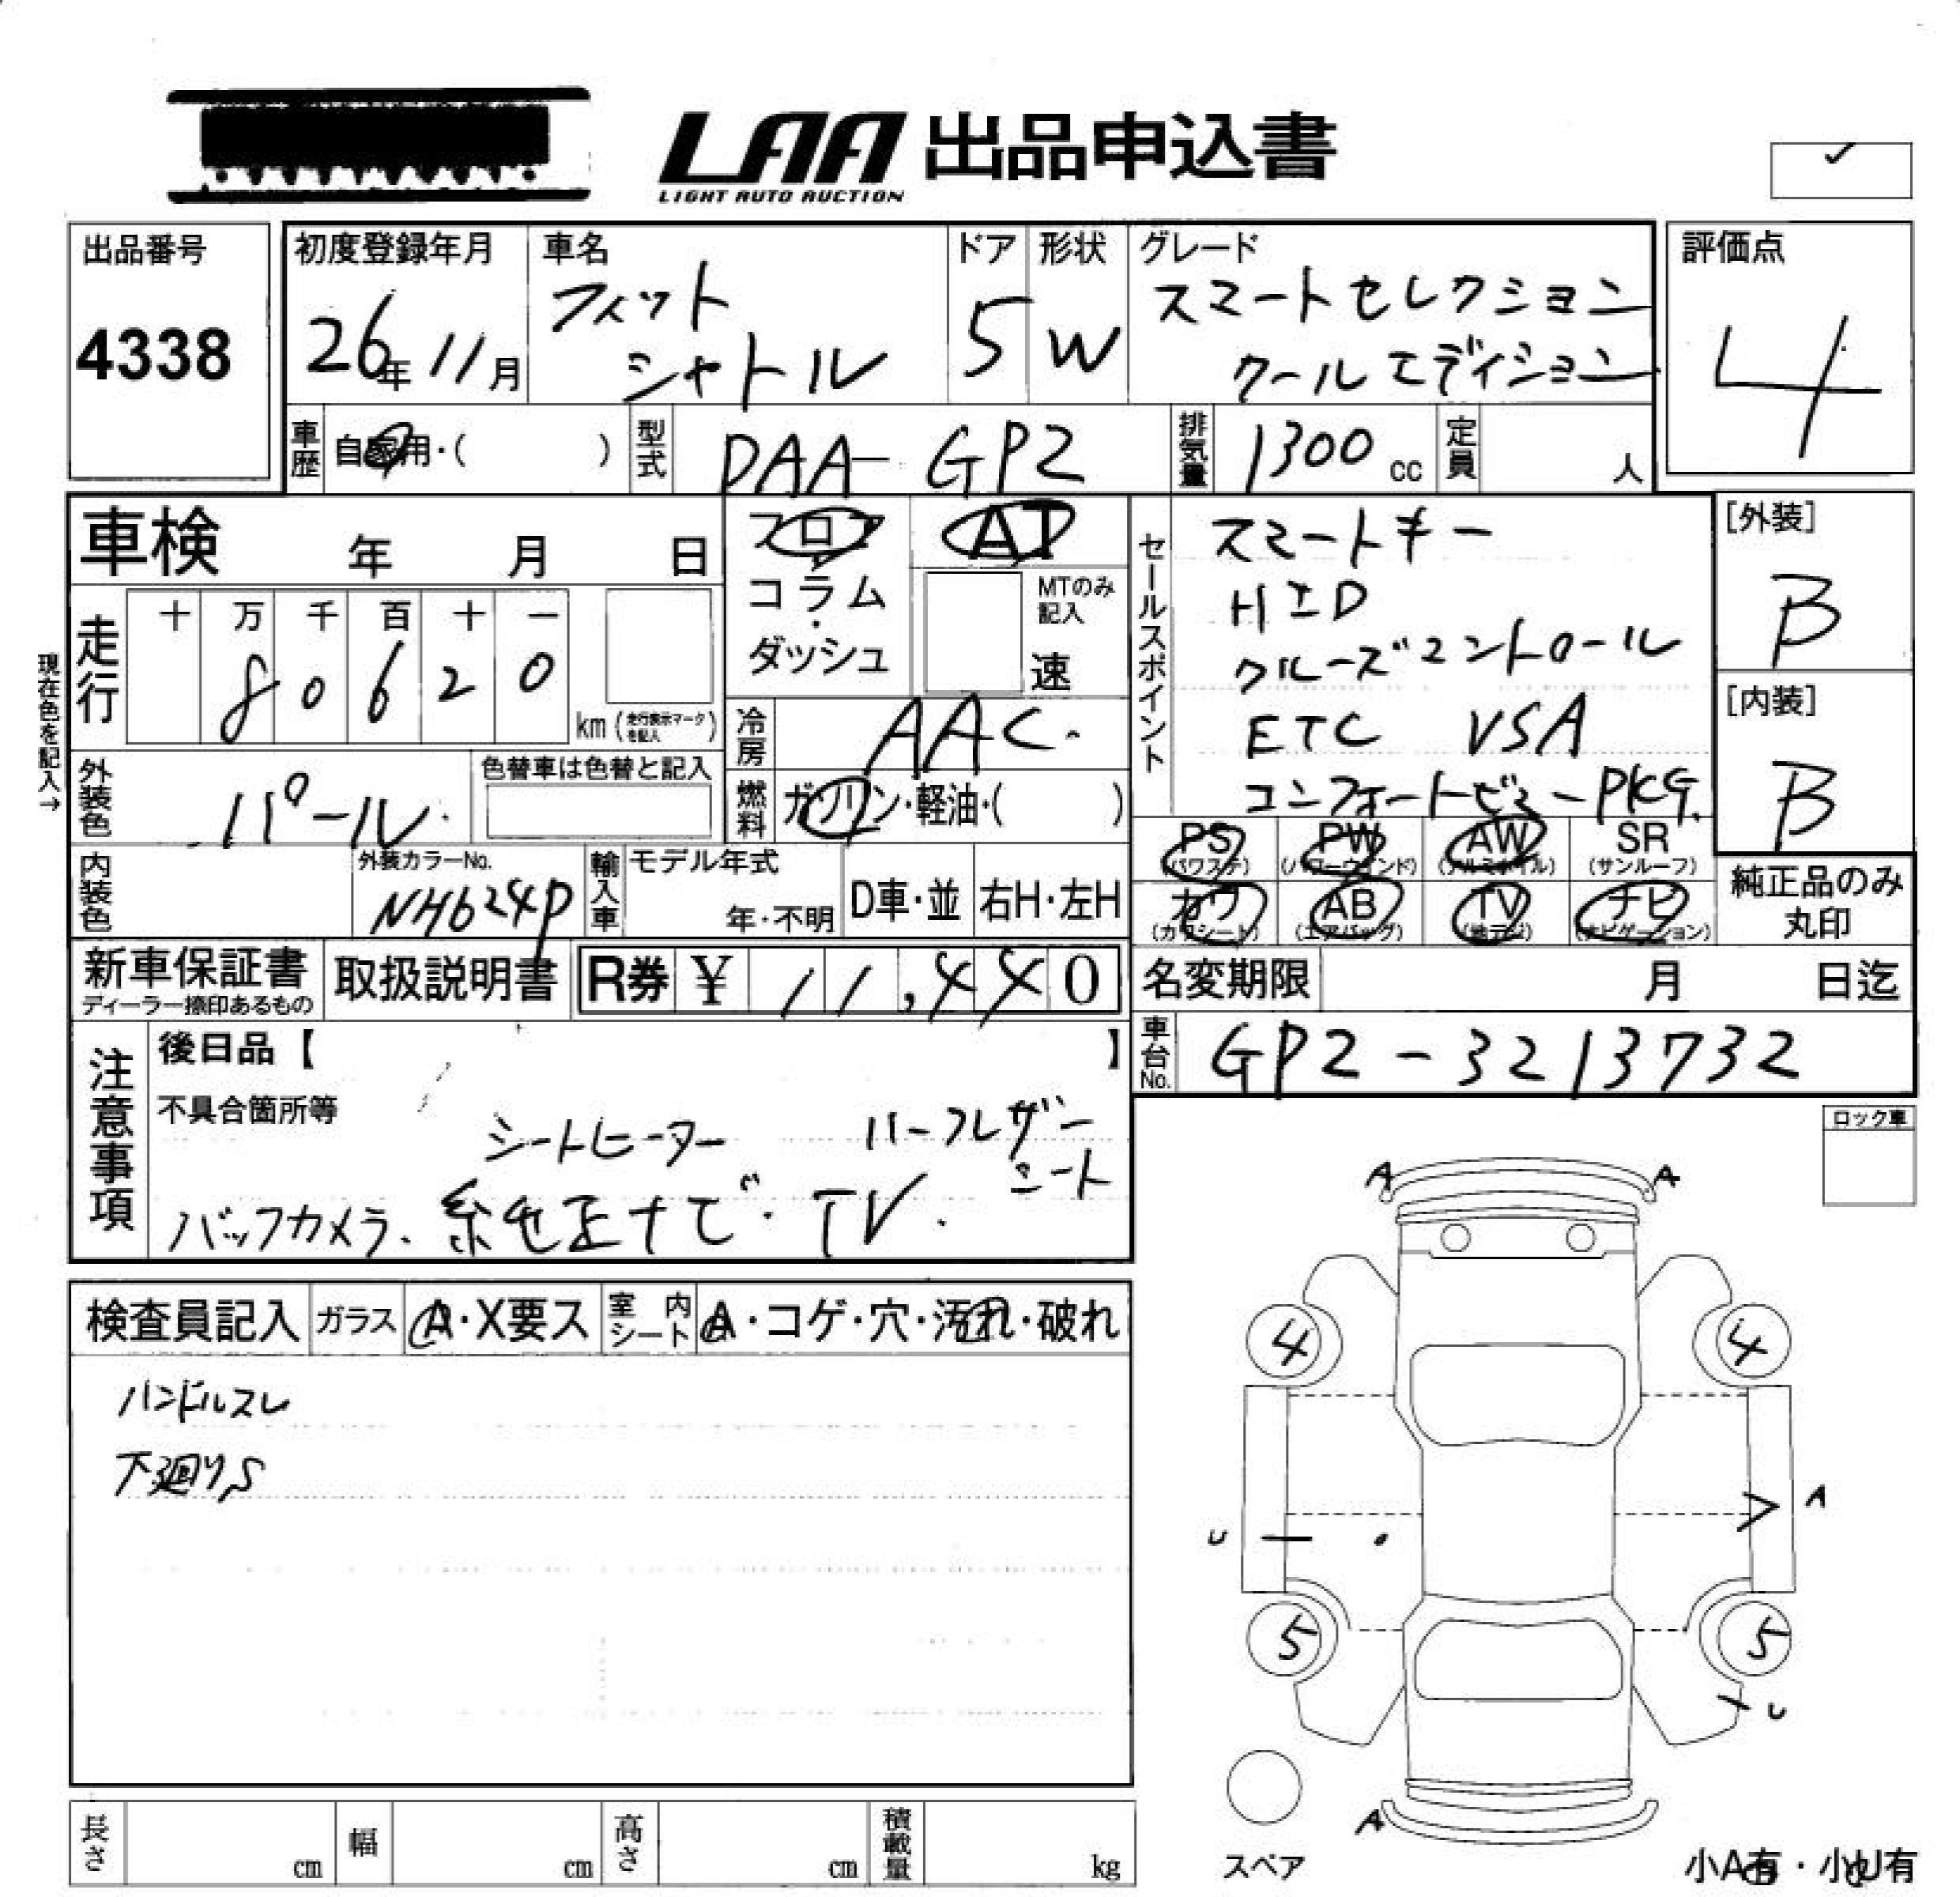 LAA 出品申込書
LIGHT AUTO AUCTION
出品番号
4338
初度登録年月
26年 11月
車名
フィット
シャトル
ドア
5
形状
W
グレード
スマートセレクション
クールエディション
評価点
4
車歴
自家用・( )
型式
DAA-GP2
排気量
1300 cc
定員
人
車検 年 月 日
フロア
・
コラム
・
ダッシュ
AT
MTのみ
記入
速
セールスポイント
スマートキー
HID
クルーズコントロール
ETC VSA
コンフォートビューPKG.
[外装]
B
[内装]
B
現在色を記入→
走行
十 万 千 百 十 一
8 0 6 2 0
km (走行表示マークを記入)
冷房
AAC.
燃料
ガソリン・軽油・( )
外装色
パール
色替車は色替と記入
PS
(パワステ)
PW
(パワーウインド)
AW
(アルミホイル)
SR
(サンルーフ)
カワ
(カワシート)
AB
(エアバッグ)
TV
(地デジ)
ナビ
(ナビゲーション)
純正品のみ
丸印
内装色
外装カラーNo.
NH624P
輸入車
モデル年式
年・不明
D車・並
右H・左H
新車保証書
ディーラー捺印あるもの
取扱説明書
R券 ¥ 11,440
名変期限 月 日迄
車台No.
GP2-3213732
注意事項
後日品【 】
不具合箇所等
シートヒーター ハーフレザー
シート
バックカメラ. 純正ナビ・TV.
ロック車
検査員記入
ガラス
A・X要ス
室内シート
A・コゲ・穴・汚れ・破れ
ハンドルスレ
下廻りS
A A
4 4
A
U
5 5
U
A
スペア
小A有・小U有
長さ cm
幅 cm
高さ cm
積載量 kg